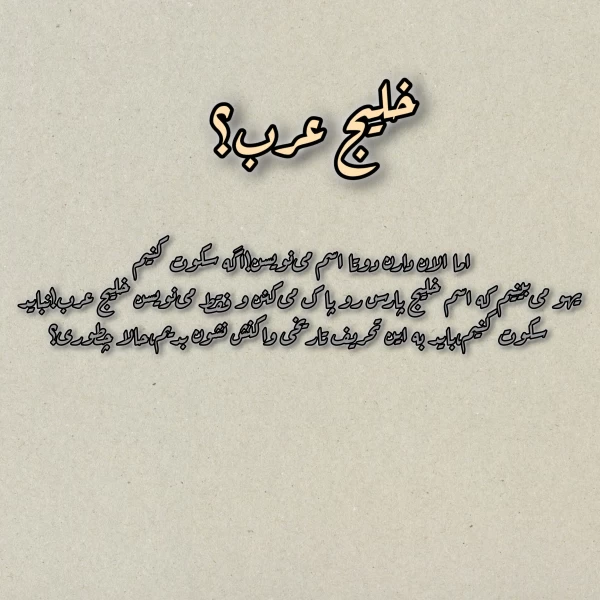 خلیج عرب؟
اما الان دارن دوتا اسم می‌نویسن!اگه سکوت کنیم
یهو می‌بینیم که اسم خلیج پارس رو پاک می‌کنن و فقط می‌نویسن خلیج عرب!نباید
سکوت کنیم،باید به این تحریف تاریخی واکنش نشون بدیم،حالا چطوری؟